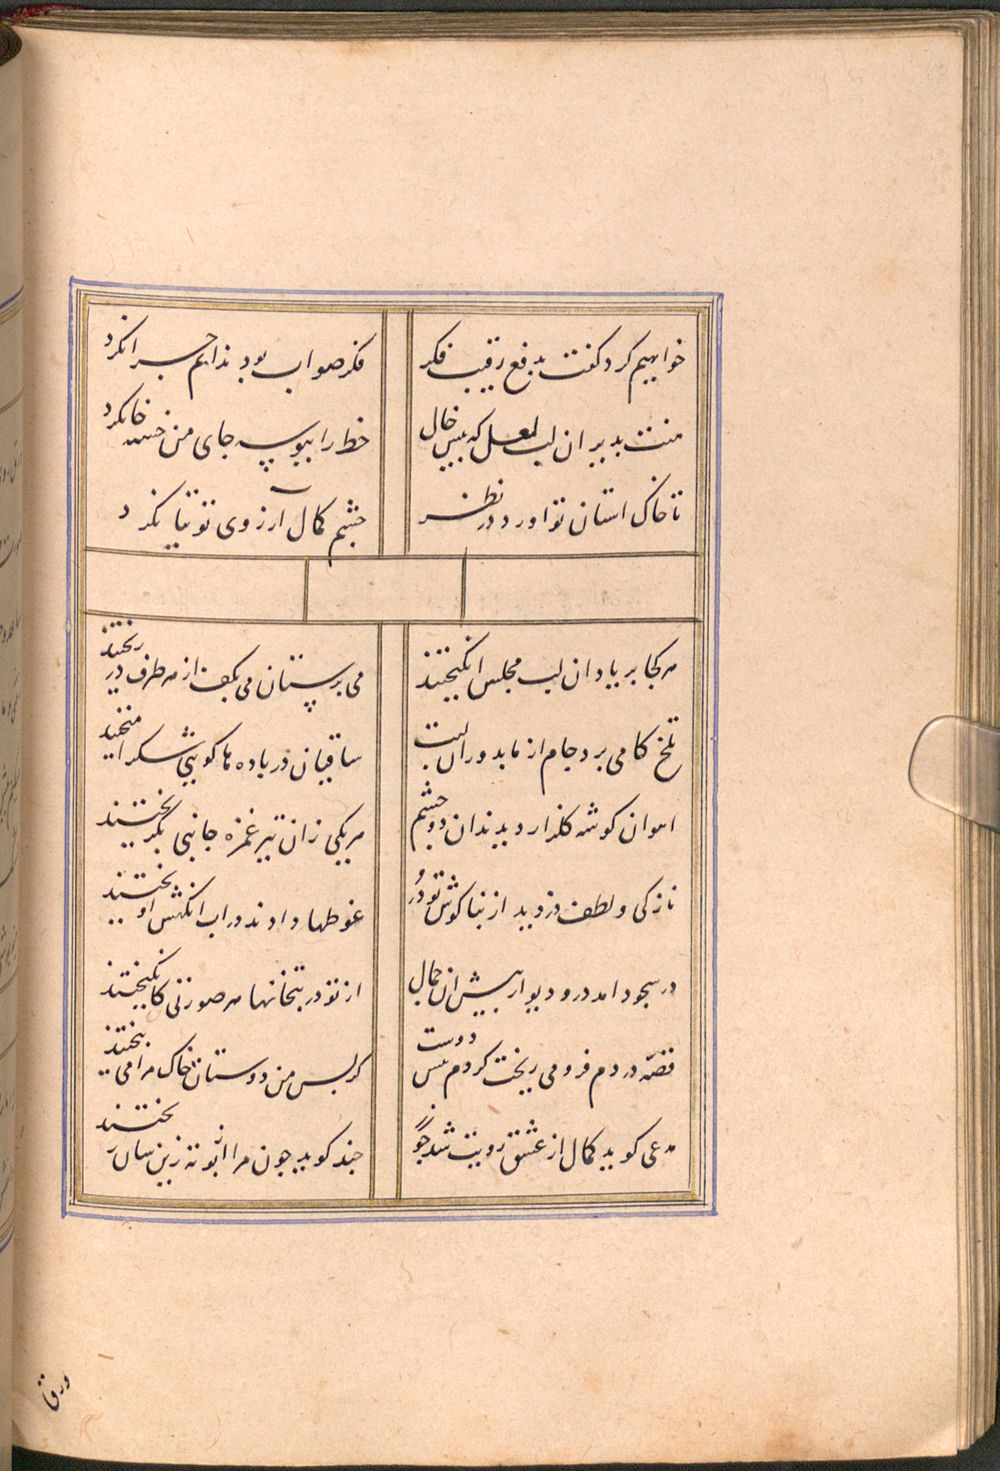 خواهیم کرد گفت بدفع رقیب فکر
فکر صواب بود ندانم چرا نکرد
منت پذیر ان لب لعل که پیش خال
خط را ببوسه جای من خسته خانکرد
تا خاک استان تو اورد در نظر
چشم کمال آرزوی توتیا نکرد
هر کجا بر یاد ان لب مجلس انکیختند
می پرستان می بکف از هر طرف در ریختند
تلخ کامی برد جام از ما بدوران لبت
ساقیان در باده ما کویی شکر امیختند
اهوان کوشه کلزار دیدند ان دو چشم
هر یکی زان تیر غمزه جانبی بکریختند
نازکی و لطف دزدید از بناکوش تو در
غوطها دادند در اب انکهش اویختند
در سجود امد در و دیوار پیش ان جمال
از تو در بتخانها هر صورتی کانکیختند
قصه دردم فرو می ریخت کردم پیش دوست
کر پس من دوستان خاک مرا می بیختند
مدعی کوید کمال از عشق رویت شد چو
چند کوید چون مرا بوته زین سان ریختند
ورق